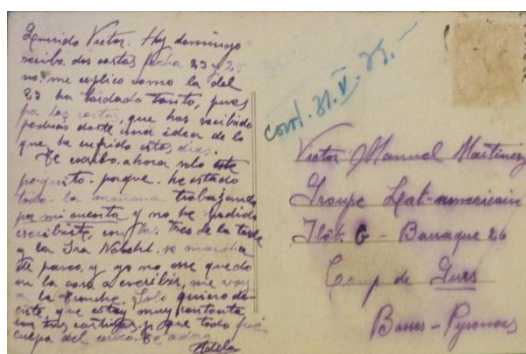 Querido Victor. Hoy domingo
recibo dos cartas fecha 23 y 25
no me esplico como la del
23 ha tardado tanto, pues
por las cartas que has recibido
podrás darte una idea de lo
que he sufrido estos días.
Te escribo ahora solo este
poquito porque he estado
toda la mañana trabajando
por mi cuenta y no he podido
escribirte, son las tres de la tarde
y la Sra se marcha
de paseo y yo no me quedo
en la casa a escribir, me voy
a la Solo quiero de-
cirte que estoy muy contenta
con tus cartitas y que todo fué
culpa del correo. Te adora
Adela
cont. 31. V. 39.-
Victor Manuel Martinez
Groupe Lat-americain
Ilôt. G - Baraque 26
Camp de Gurs
Basses-Pyrenees